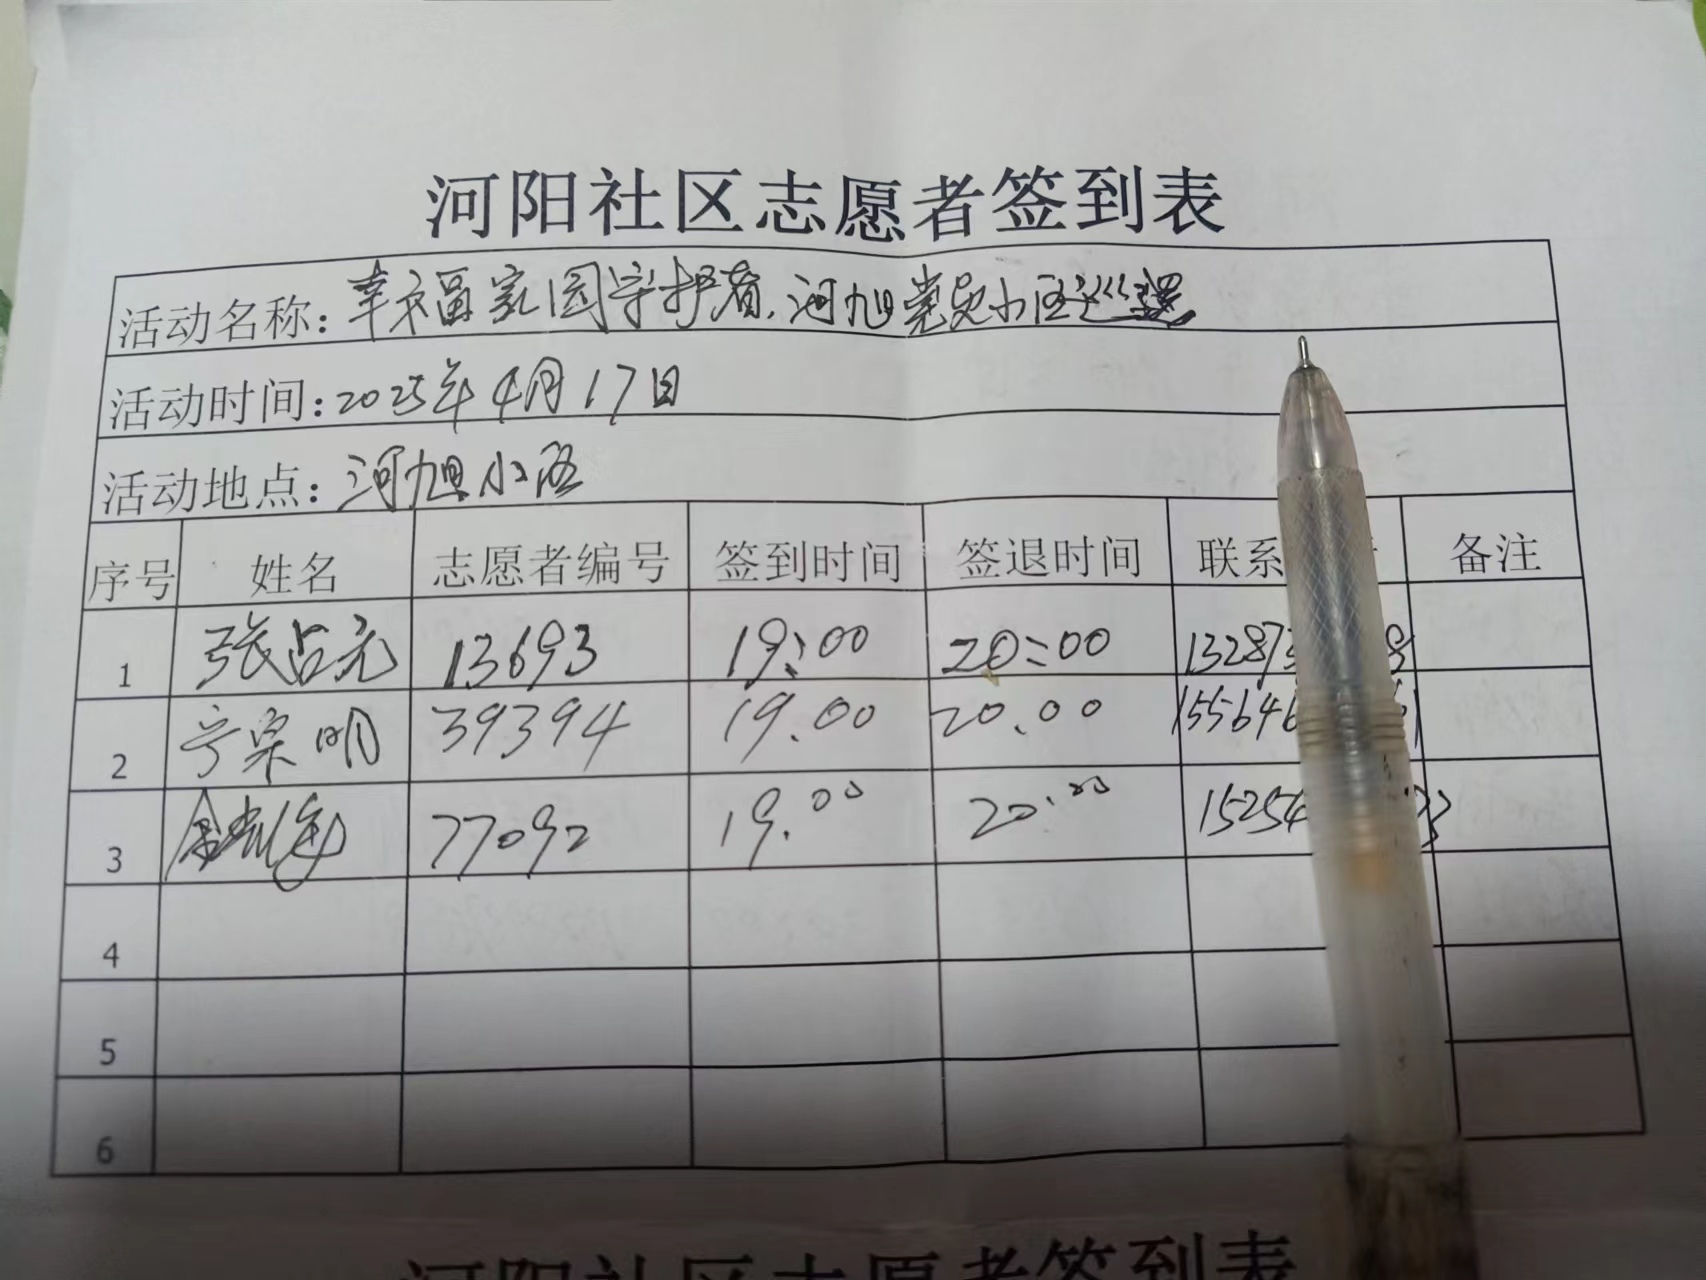 河阳社区志愿者签到表
活动名称：幸福家园守护者、河旭党员小区巡逻
活动时间：2025年4月17日
活动地点：河旭小区
序号 姓名 志愿者编号 签到时间 签退时间 联系 备注
1 张占元 13693 19:00 20:00 13287
2 宁宗明 39394 19.00 20.00 15564
3 77092 19.00 20.00 15254
4
5
6
河阳社区志愿者签到表